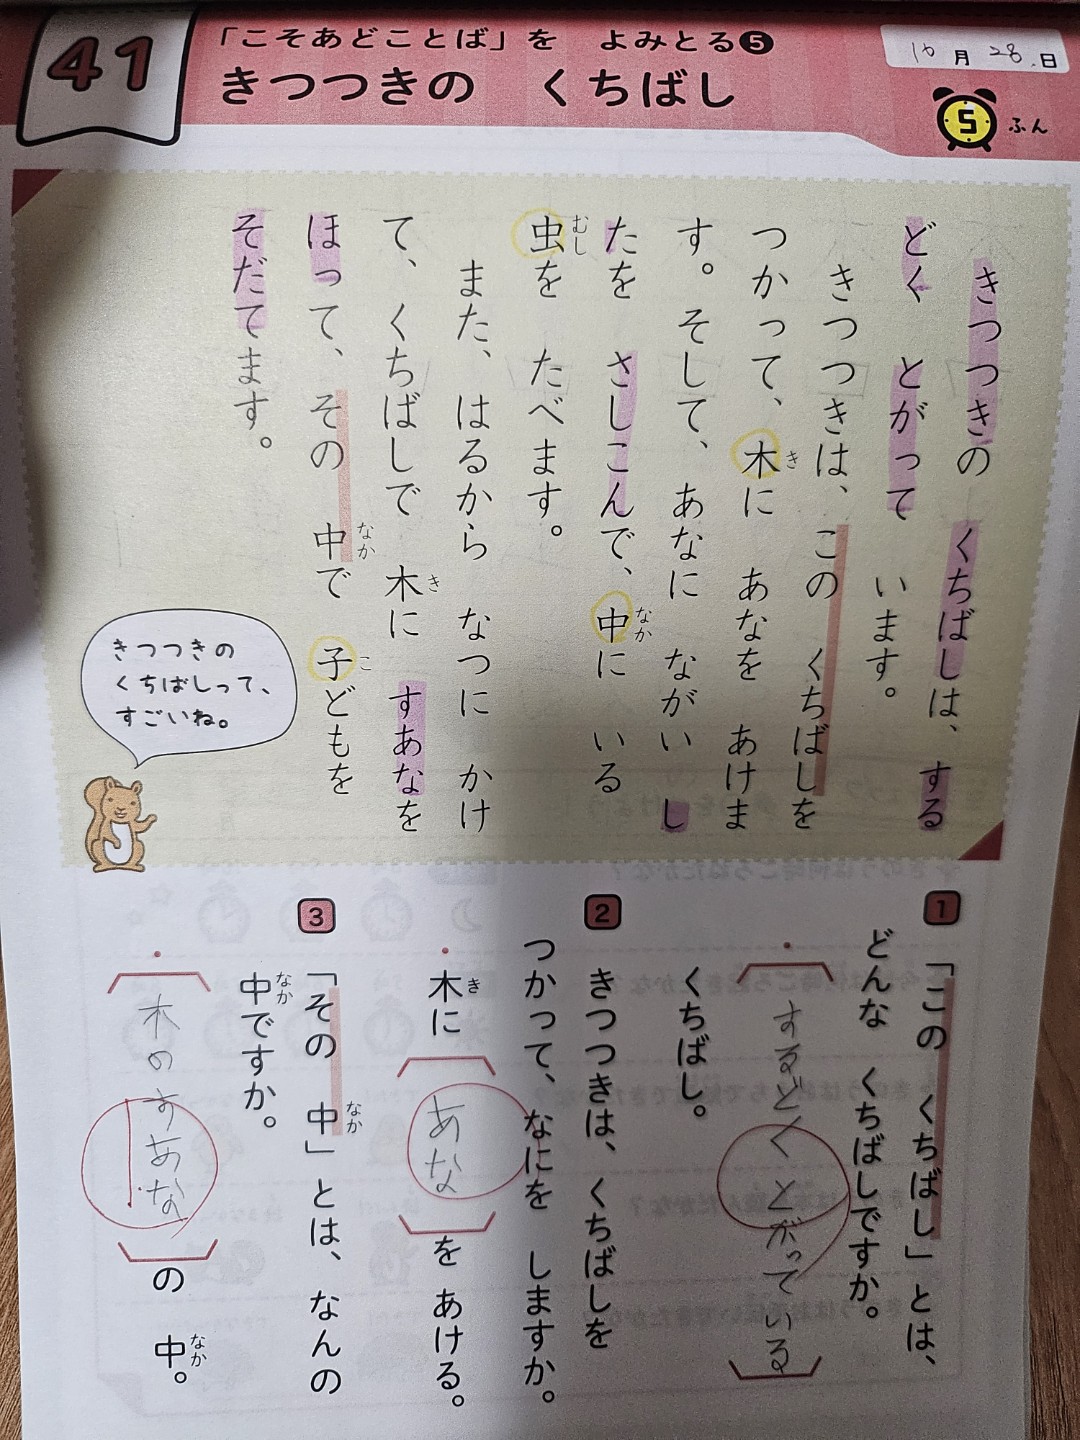 41
「こそあどことば」を よみとる5
きつつきの くちばし
10月28日
5ふん
きつつきの くちばしは、する
どく とがって います。
きつつきは、この くちばしを
つかって、木に あなを あけま
す。そして、あなに ながい し
たを さしこんで、中に いる
虫を たべます。
また、はるから なつに かけ
て、くちばしで 木に すあなを
ほって、その 中で 子どもを
そだてます。
きつつきの
くちばしって、
すごいね。
1 「この くちばし」とは、
どんな くちばしですか。
・するどくとがっている
くちばし。
2 きつつきは、くちばしを
つかって、なにを しますか。
・木に あな を あける。
3 「その 中」とは、なんの
中ですか。
・木のすあな の 中。